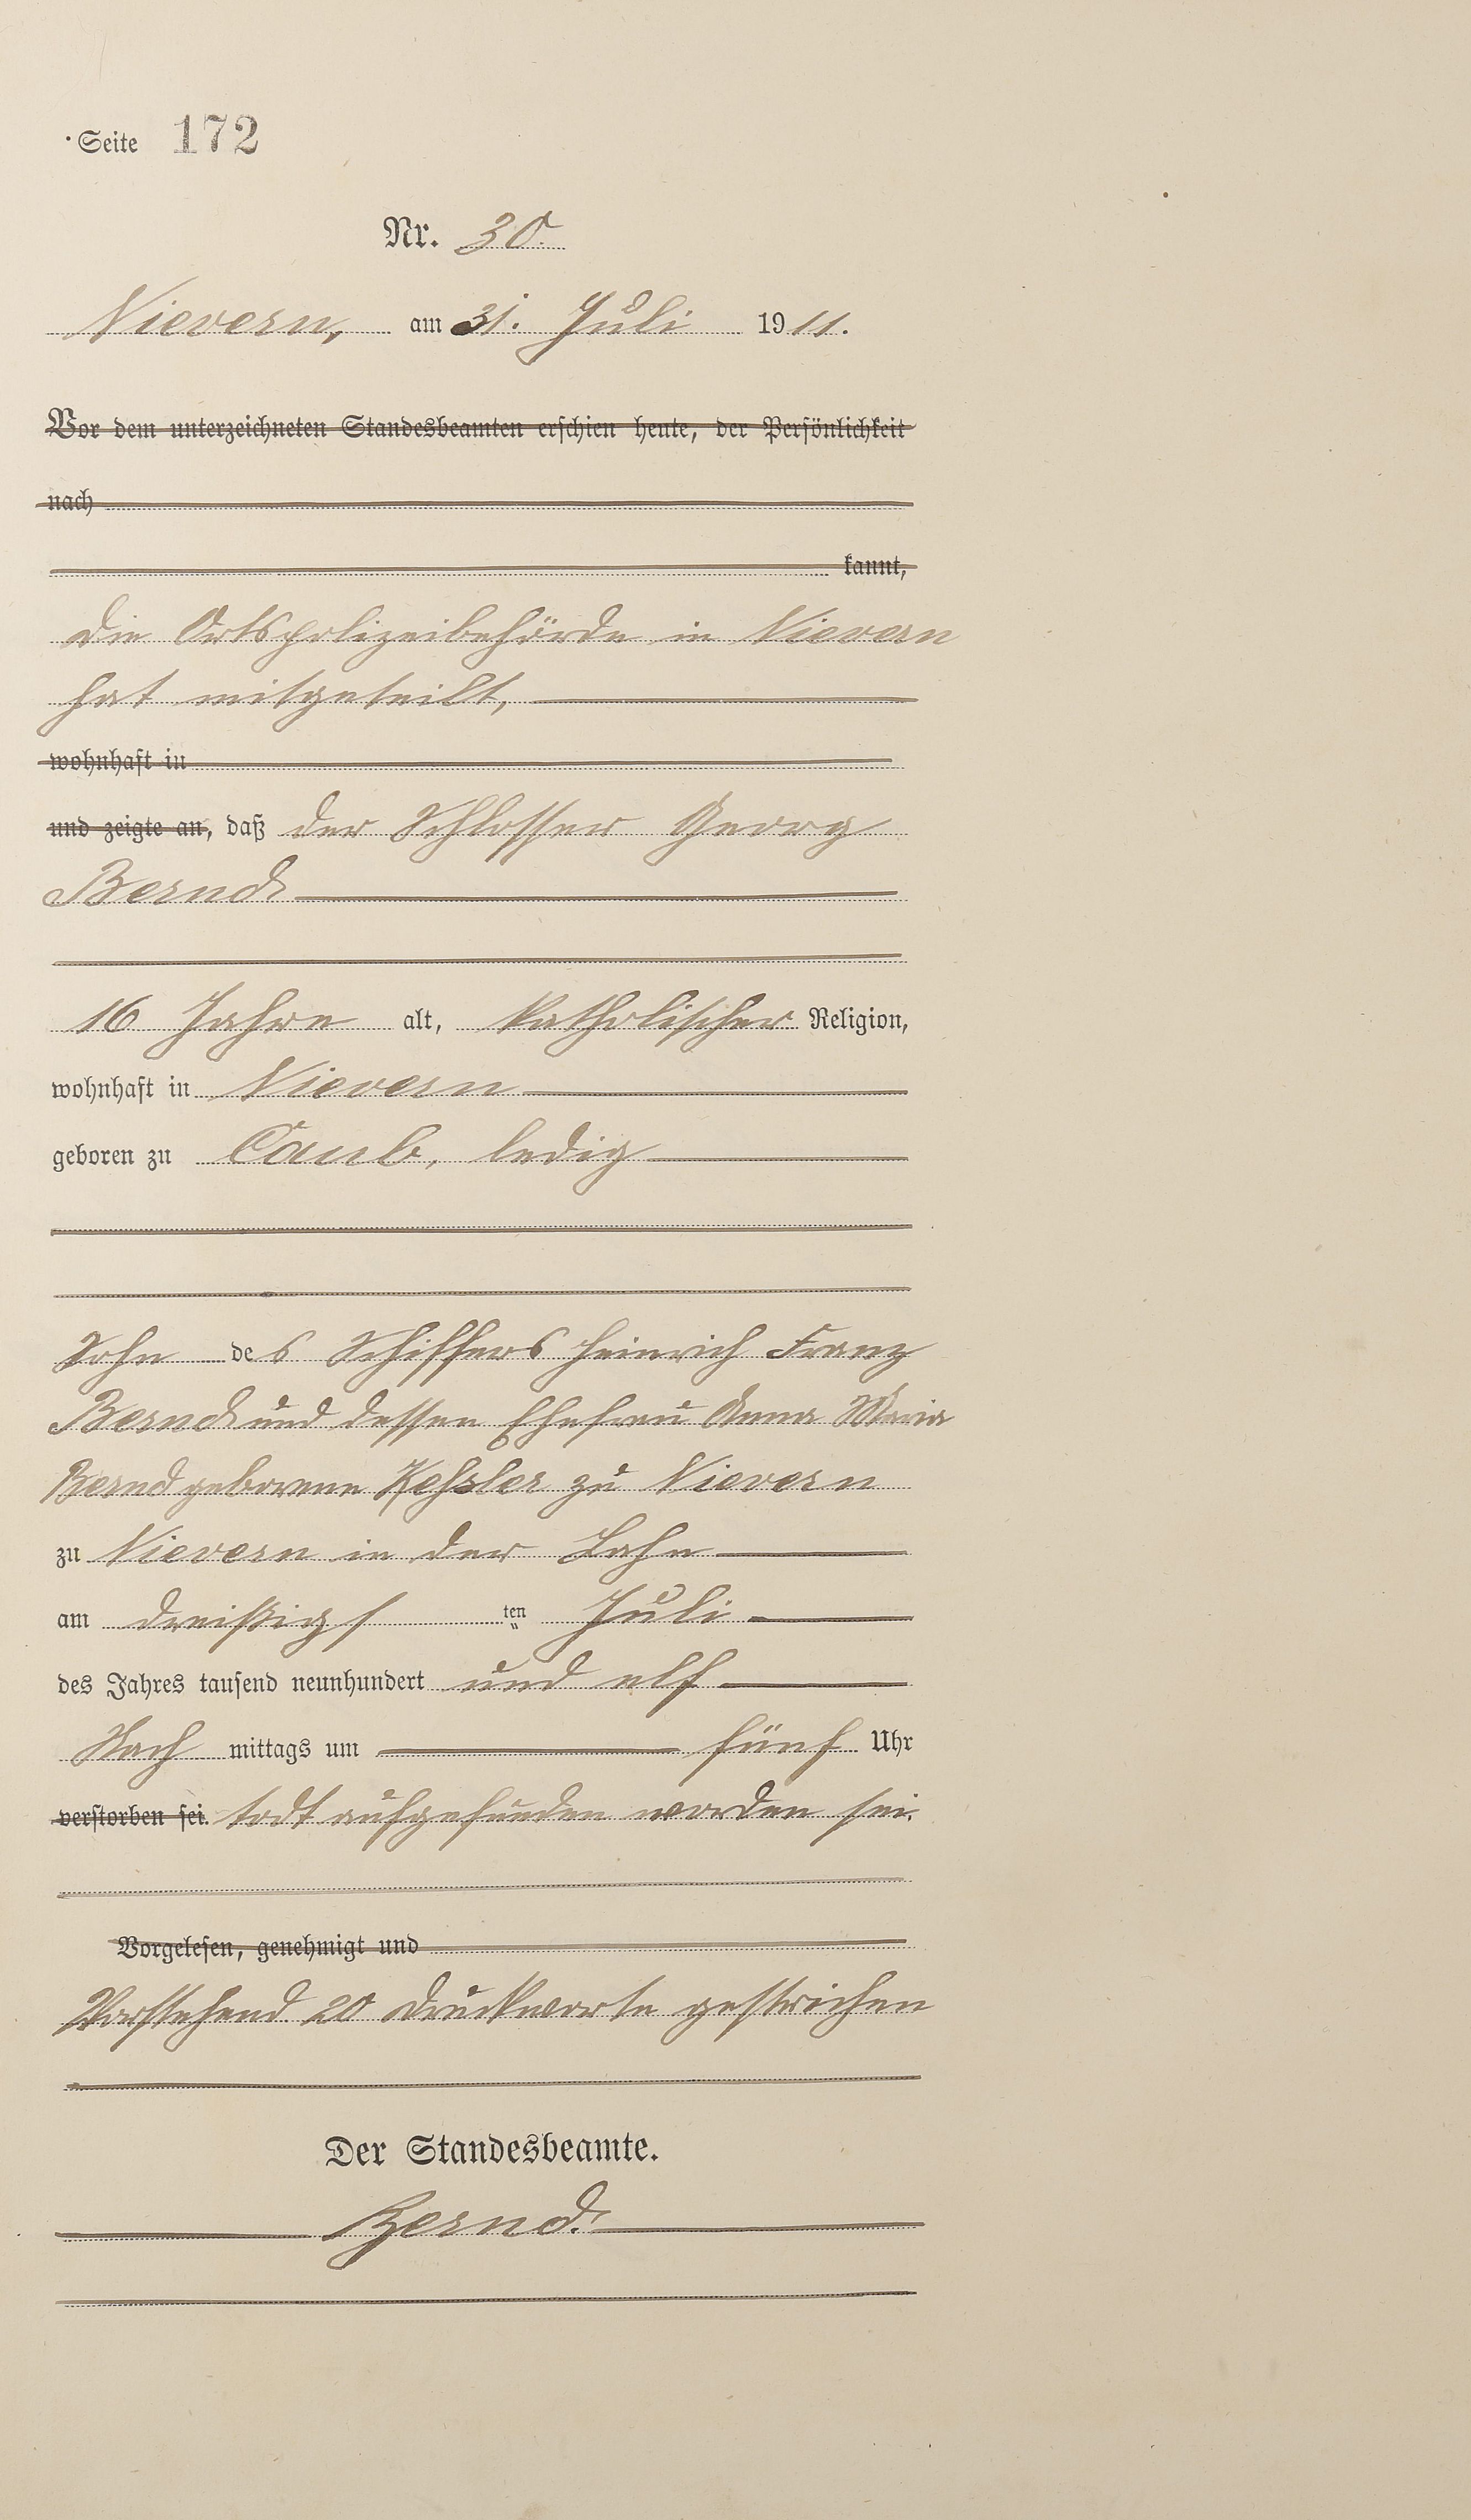 Seite 172
Nr. 30.
Nievern, am 31. Juli 1911.
Vor dem unterzeichneten Standesbeamten erschien heute, der Persönlichkeit
nach
kannt,
Die Ortspolizeibehörde in Nievern
hat mitgeteilt,
wohnhaft in
und zeigte an, daß der Schlosser Georg
Bernd
16 Jahre alt, katholischer Religion,
wohnhaft in Nievern
geboren zu Caub, ledig
Sohn des Schiffers Heinrich Franz
Bernd und dessen Ehefrau Anna Maria
Bernd geborene Keßler zu Nievern
zu Nievern in der Lahn
am dreißigsten Juli
des Jahres tausend neunhundert und elf
Nachmittags um fünf Uhr
verstorben sei. todt aufgefunden worden sei.
Vorgelesen, genehmigt und
Vorstehend 20 Druckworte gestrichen
Der Standesbeamte.
Bernd.